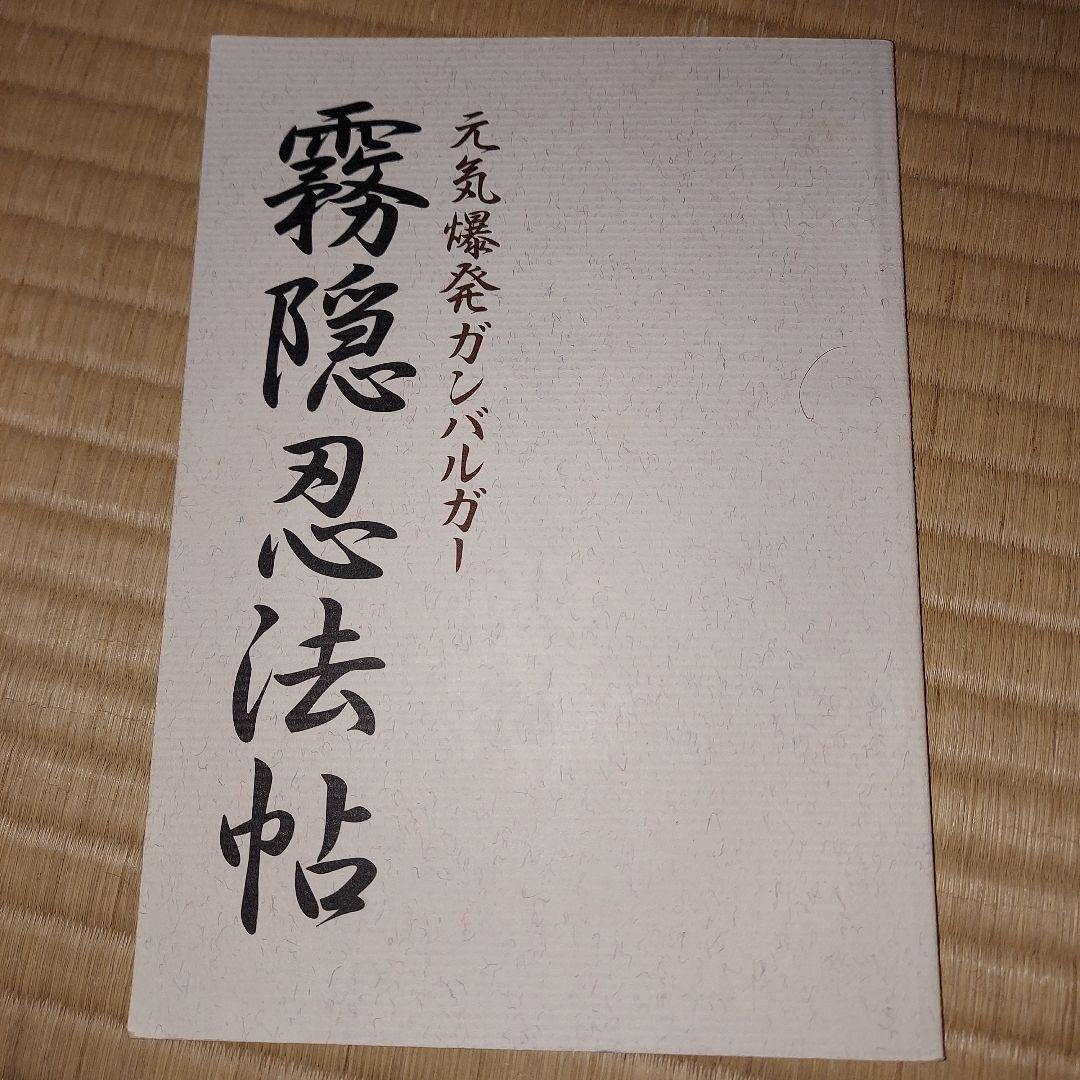 元気爆発ガンバルガー
霧隠忍法帖